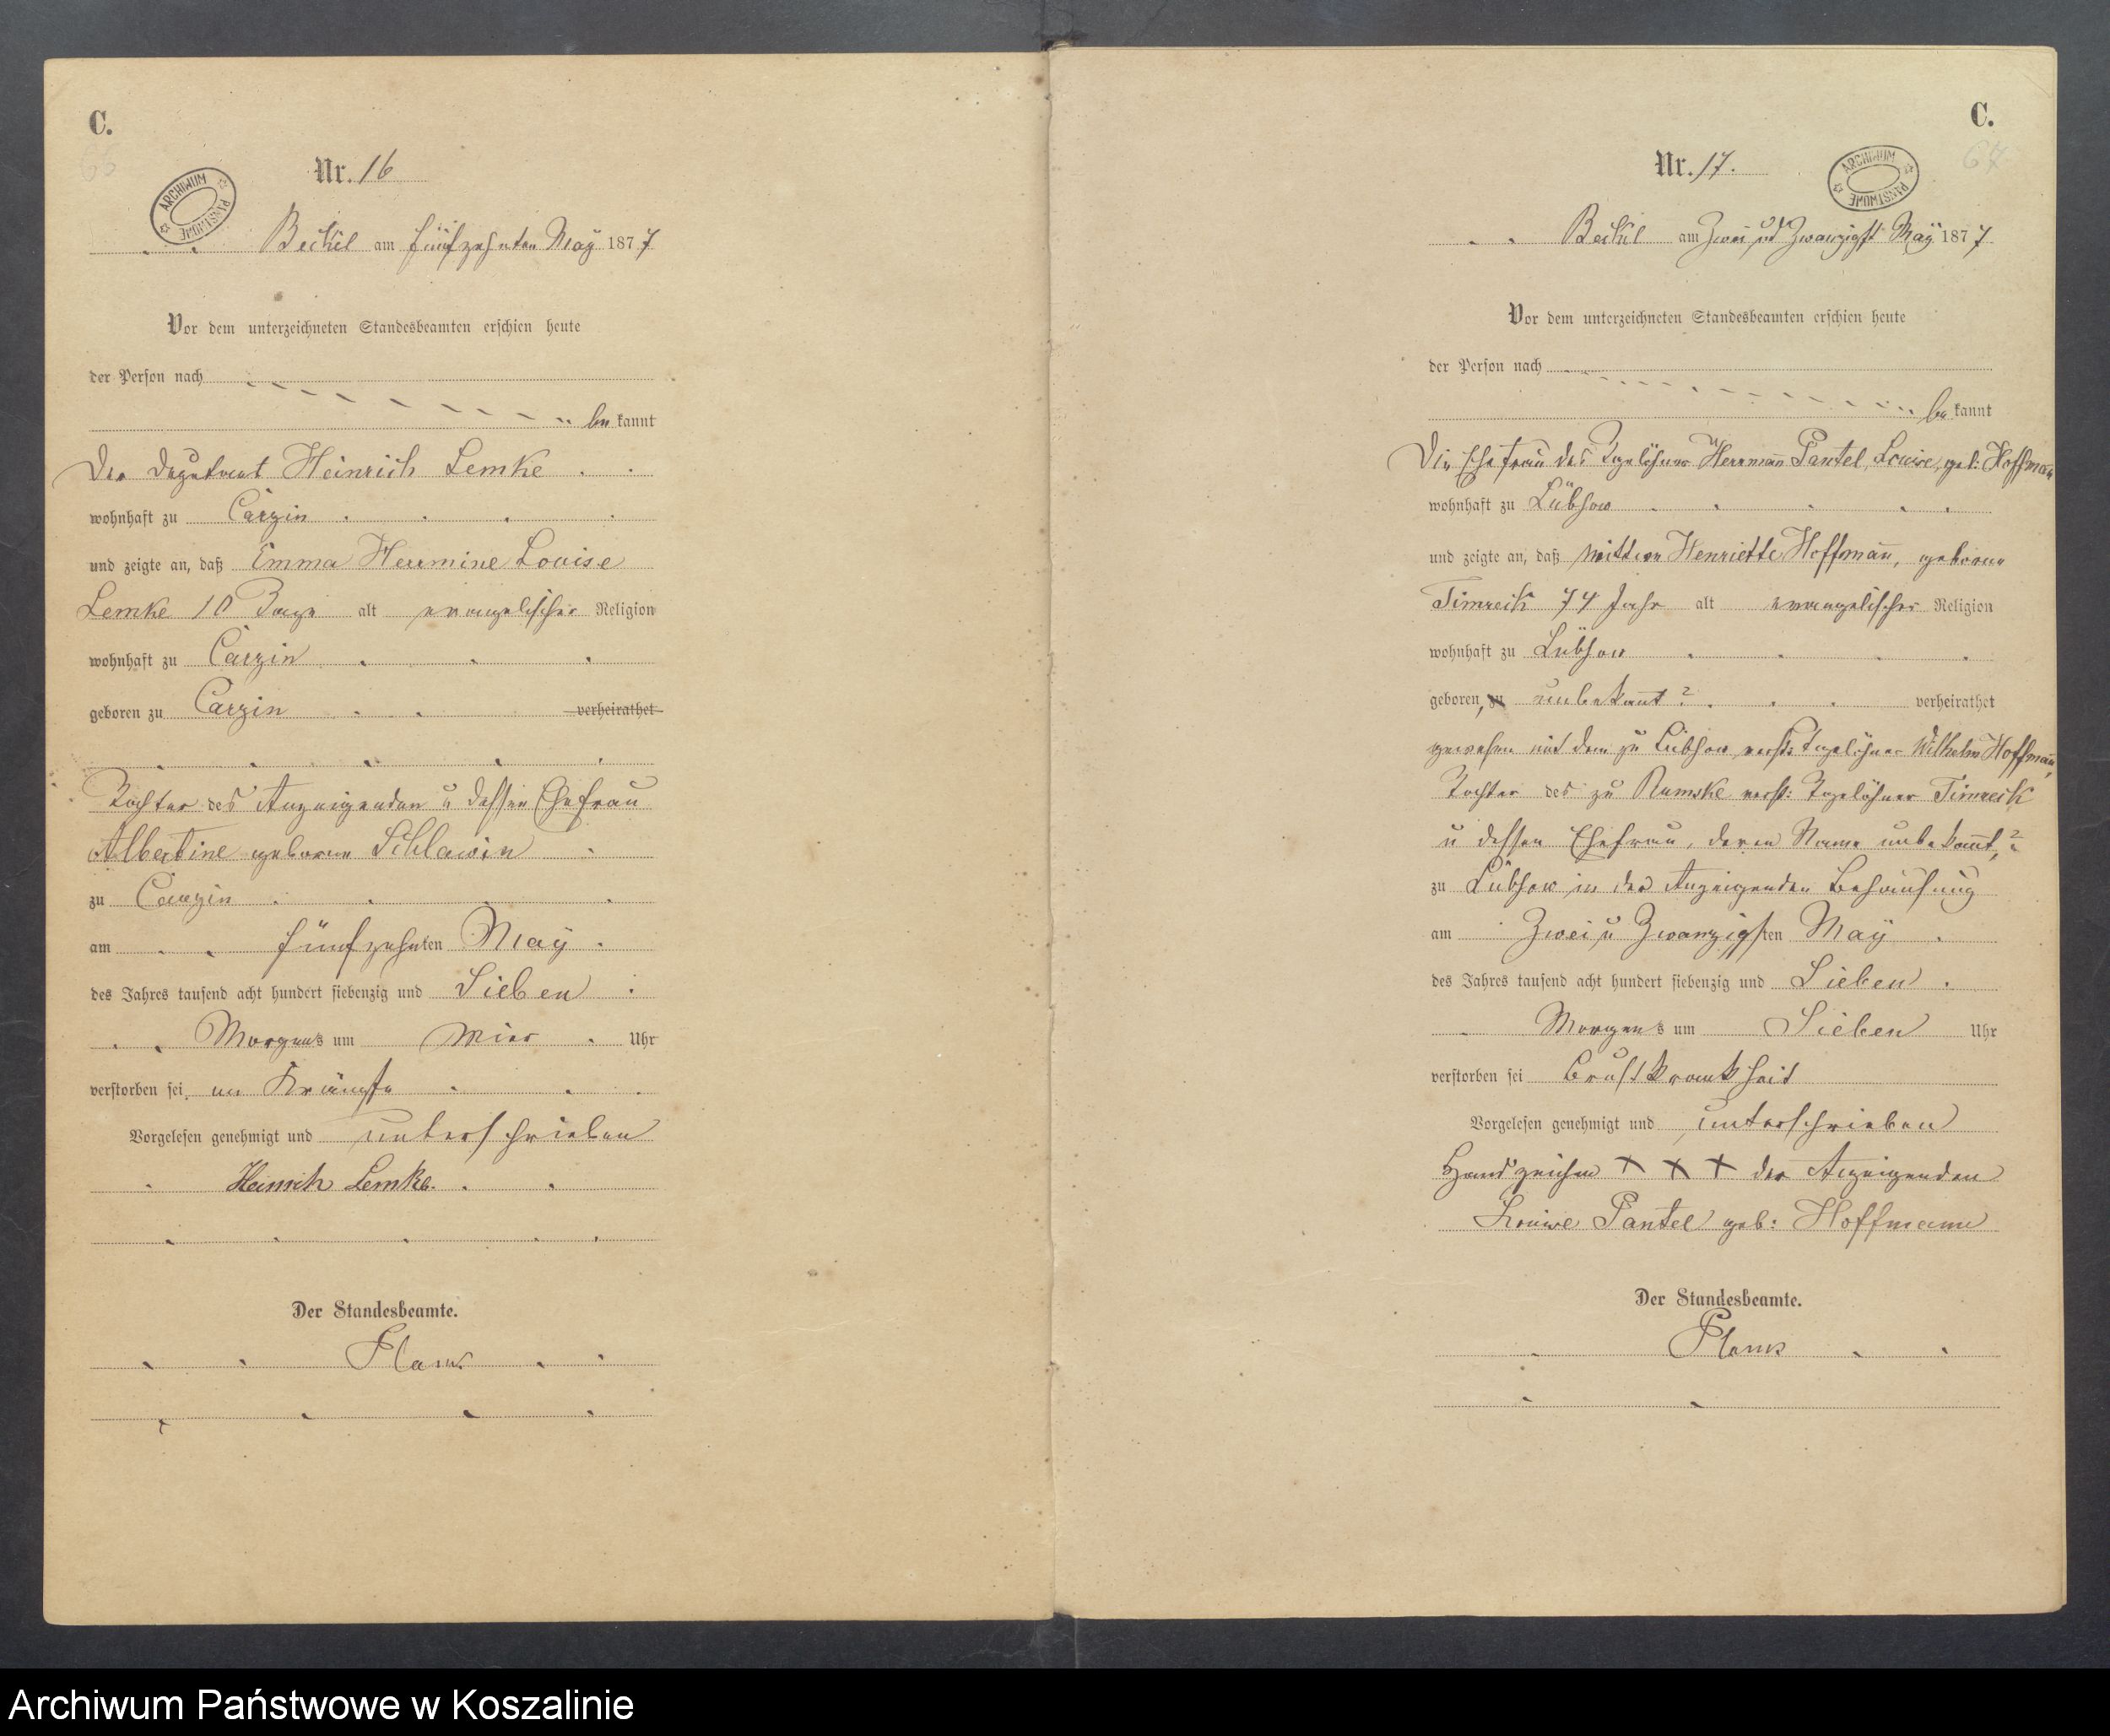 C.
66
Nr. 16
ARCHIWUM PAŃSTWOWE
Beckel am fünfzehnten May 1877
Vor dem unterzeichneten Standesbeamten erschien heute
der Person nach
bekannt
Der Deputant Heinrich Lemke
wohnhaft zu Carzin
und zeigte an, daß Emma Herrmine Louise
Lemke 10 Tage alt evangelischer Religion
wohnhaft zu Carzin
geboren zu Carzin verheirathet
Tochter des Anzeigenden u dessen Ehefrau
Albertine geborne Schlawin
zu Carzin
am fünfzehnten May
des Jahres tausend acht hundert siebenzig und Sieben
Morgens um Vier Uhr
verstorben sei, an Krämpfe
Vorgelesen genehmigt und unterschrieben
Heinrich Lemke.
Der Standesbeamte.
C.
67
Nr. 17.
ARCHIWUM PAŃSTWOWE
Beckel am Zwei und Zwanzigst May 1877
Vor dem unterzeichneten Standesbeamten erschien heute
der Person nach
bekannt
Die Ehefrau des Tagelöhner Herrmann Pantel, Louise, geb: Hoffmañ
wohnhaft zu Lübsow
und zeigte an, daß Wittwe Henriette Hoffmañ, geborne
Timreck 74 Jahr alt evangelischer Religion
wohnhaft zu Lübsow
geboren, zu unbekañt? verheirathet
gewesen mit dem zu Lübsow verst: Tagelöhner Wilhelm Hoffmañ,
Tochter des zu Rumske verst: Tagelöhner Timreck
u dessen Ehefrau, deren Name unbekañt, ?
zu Lübsow in der Anzeigenden Behausung
am Zwei u Zwanzigsten May
des Jahres tausend acht hundert siebenzig und Sieben
Morgens um Sieben Uhr
verstorben sei Brustkrankheit
Vorgelesen genehmigt und unterschrieben
Handzeichen X X X der Anzeigenden
Louise Pantel geb: Hoffmann
Der Standesbeamte.
Archiwum Państwowe w Koszalinie